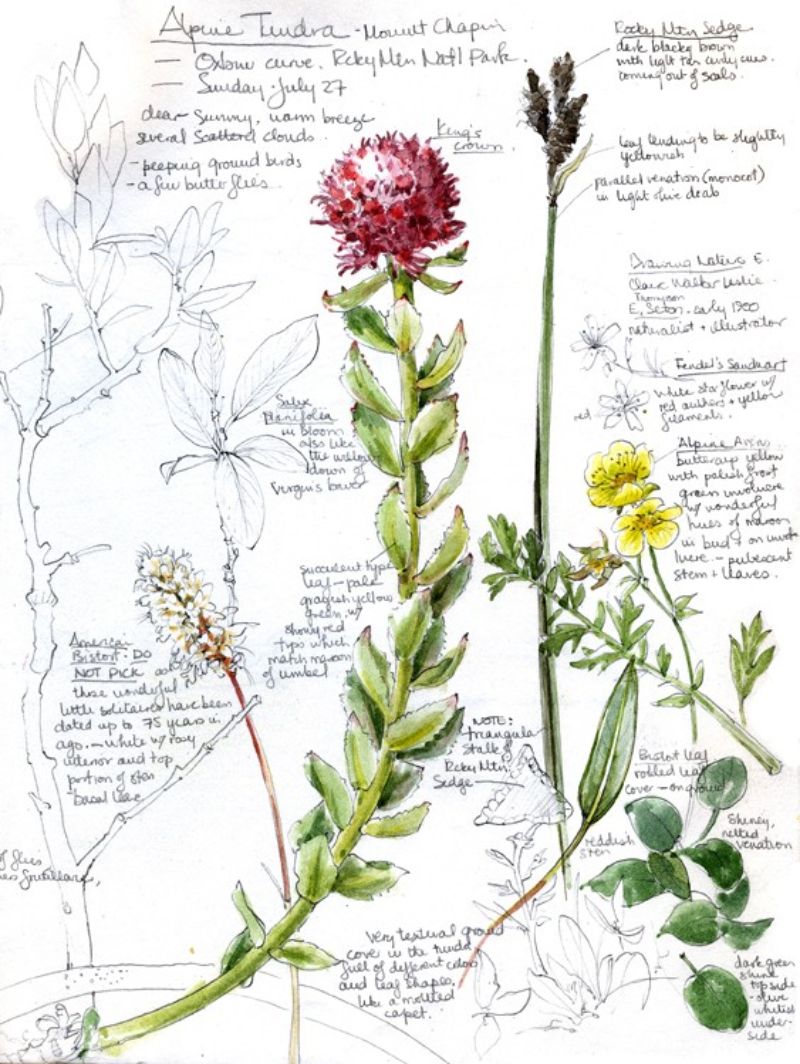 Alpine Tundra - Mount Chapin
— Oxbow curve. Rcky Mtn Nat'l Park.
— Sunday - July 27
clear sunny, warm breeze
several scattered clouds.
- peeping ground birds
- a few butterflies.
King's
crown.
Rocky Mtn Sedge
dark blacky brown
with light tan curly cues
coming out of seals.
leaf tending to be slightly
yellowish
parallel venation (monocot)
in light olive drab
Drawing Nature E.
Clare Walker Leslie.
Thompson
E. Seton. early 1900
naturalist + illustrator
Fendler's Sandwort
White star flower w/
red anthers + yellow
filaments.
red
Alpine Avens
buttercup yellow
with polish frost
green involucre
w/ wonderful
hues of maroon
in bud + on invo-
lucre. - pubescent
stem + leaves.
Salix
Planifolia
in bloom
also like
the willow
down of
Virgin's bower
succulent type
leaf - pale
grayish yellow
green, w/
showy red
tips which
match maroon
of umbel
American
Bistort - DO
NOT PICK as
these wonderful
little solitaires have been
dated up to 75 years in
age. - white w/ rosy
interior and top
portion of stem
basal leaf
NOTE:
triangular
stalk of
Rcky Mtn
Sedge
Bistort leaf
cover - on ground
Shiney,
netted
venation
reddish
stem
of flies
very textural ground
cover in the tundra
full of different colors
and leaf shapes,
like a mottled
carpet.
dark green
shine
top side
- olive
whitest
under-
side